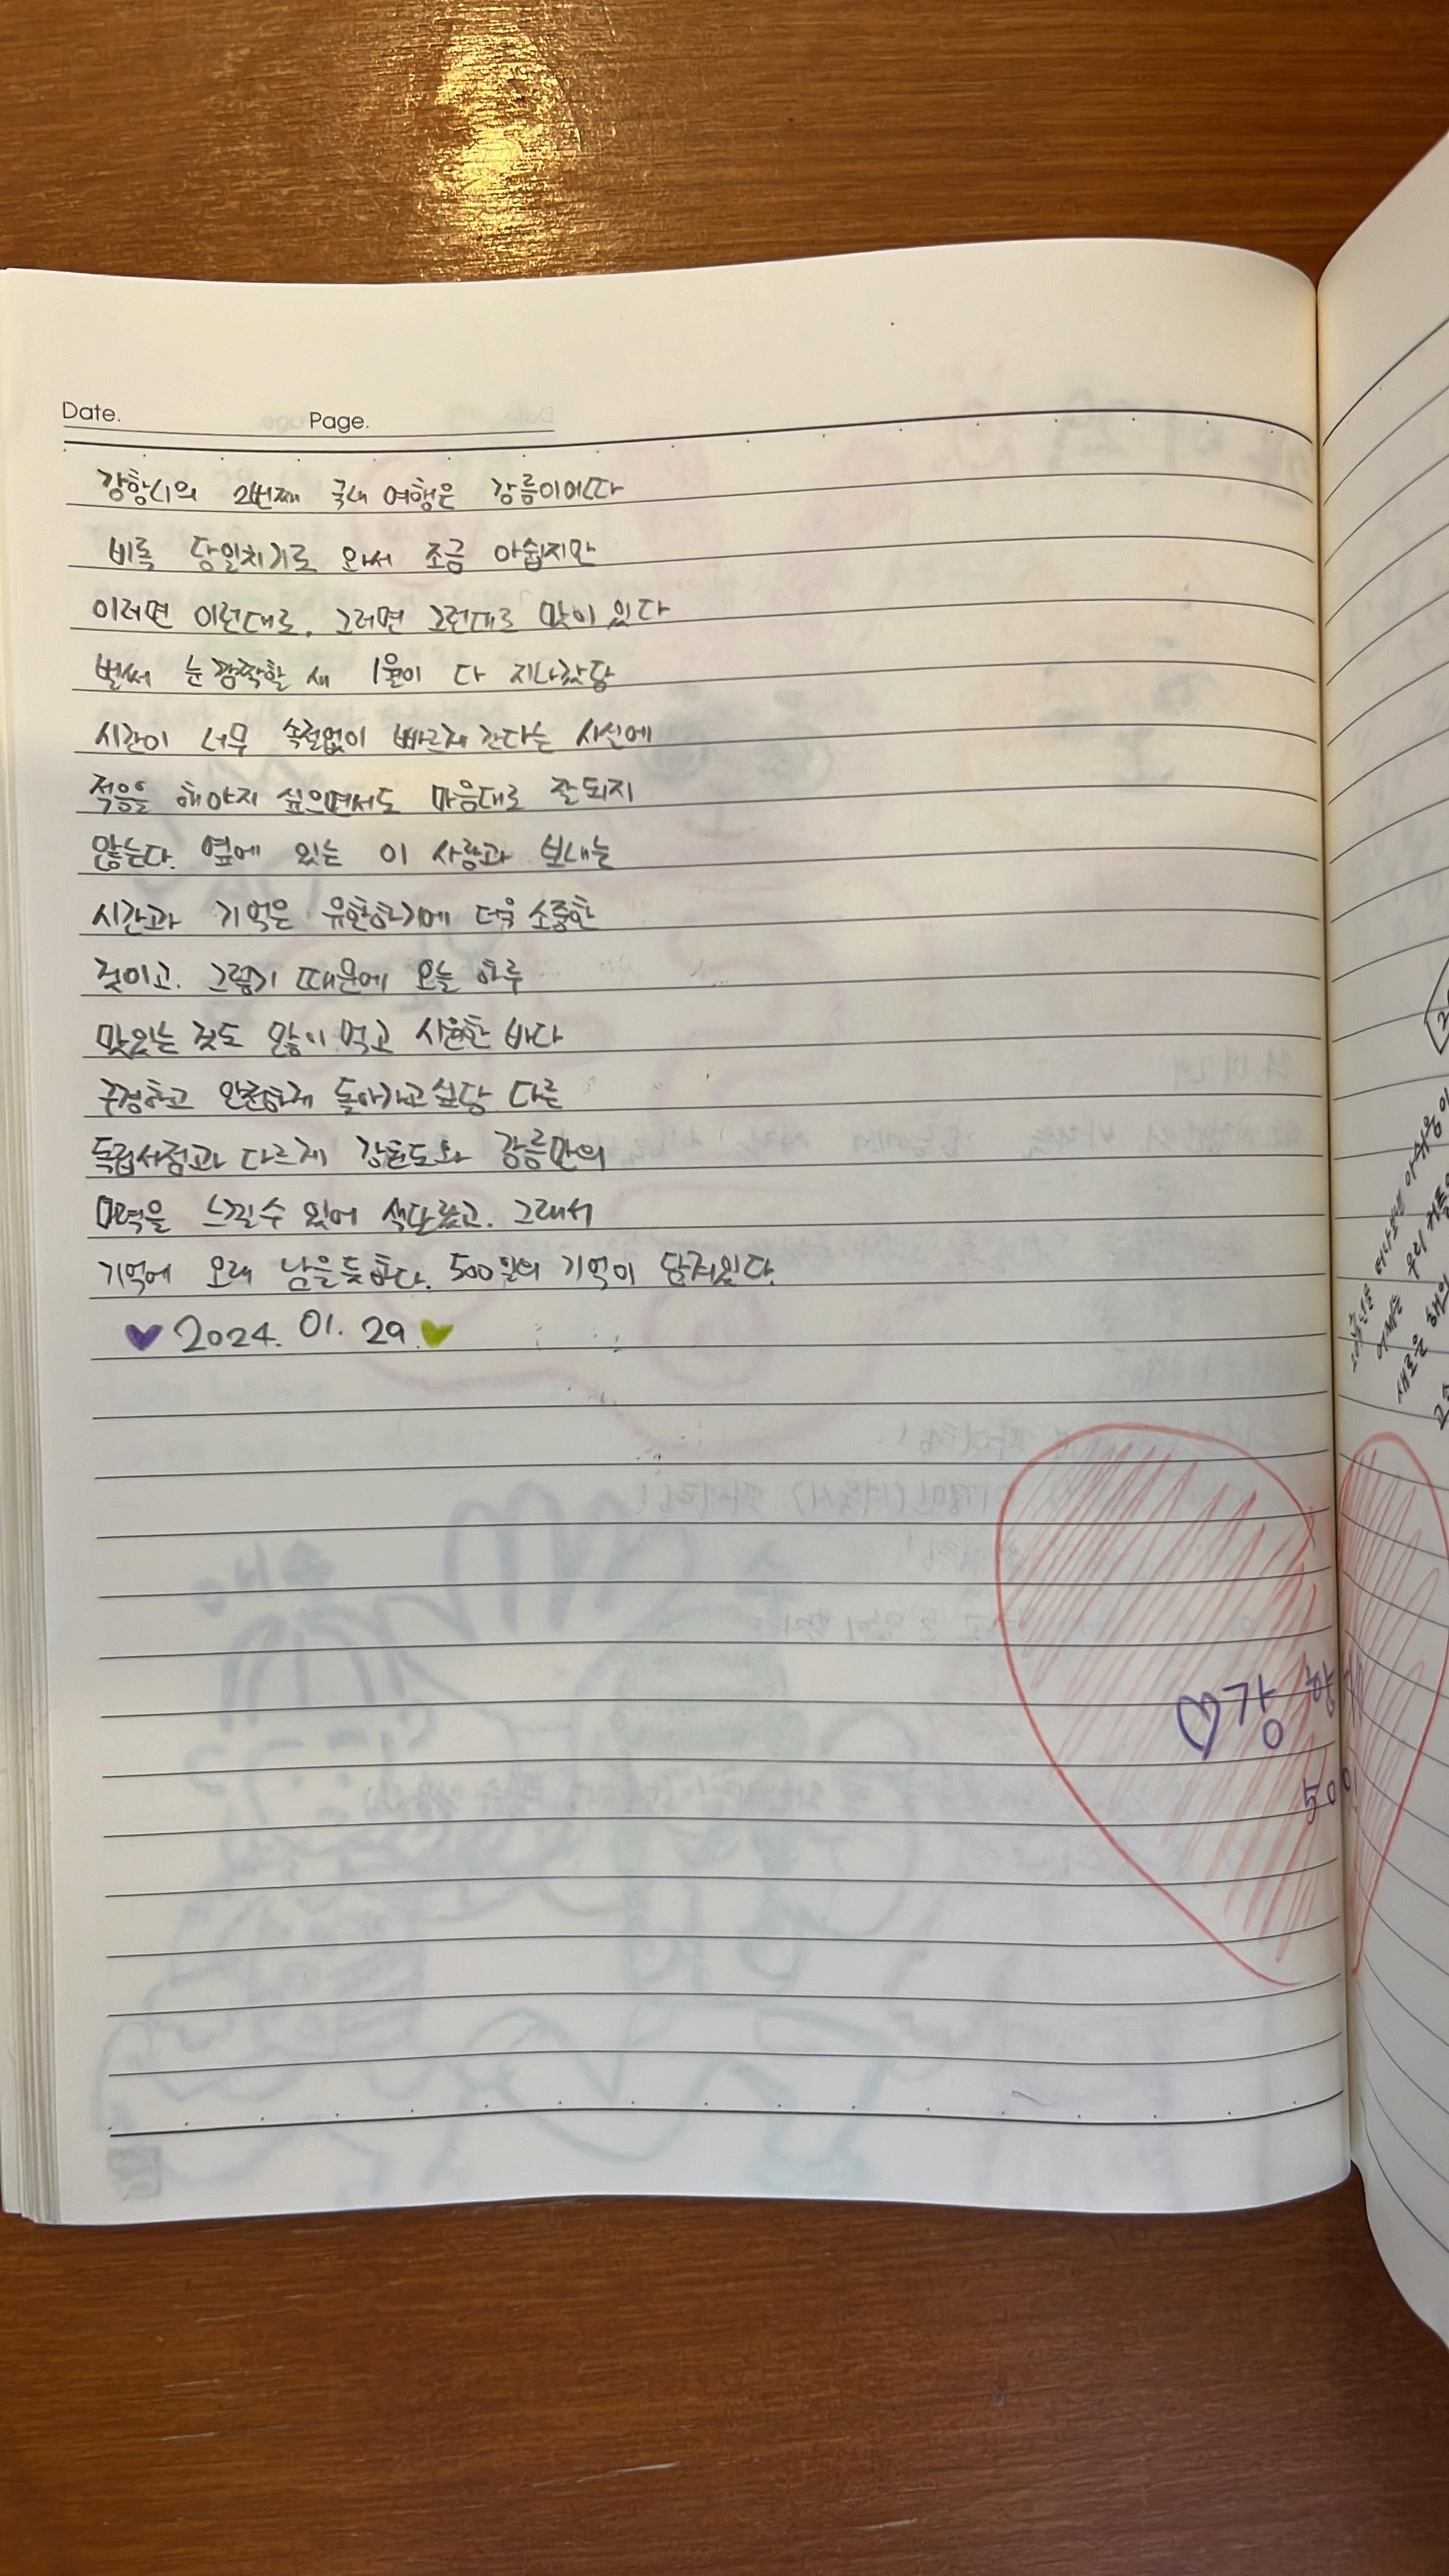 Date. Page.
강항시의 2번째 국내 여행은 강릉이어따
비록 당일치기로 와서 조금 아쉽지만
이러면 이런대로, 그러면 그런대로 맛이 있다
벌써 눈 깜짝할 새 1월이 다 지나갔당
시간이 너무 속절없이 빠르게 간다는 사실에
적응을 해야지 싶으면서도 마음대로 잘 되지
않는다. 옆에 있는 이 사람과 보내는
시간과 기억은 유한하기에 더욱 소중한
것이고. 그렇기 때문에 오늘 하루
맛있는 것도 많이 먹고 시원한 바다
구경하고 안전하게 돌아가고 싶당 다른
독립서점과 다르게 강원도와 강릉만의
매력을 느낄 수 있어 색달랐고. 그래서
기억에 오래 남을 듯하다. 500일의 기억이 담겨있다.
2024. 01. 29.
♡강 항
500